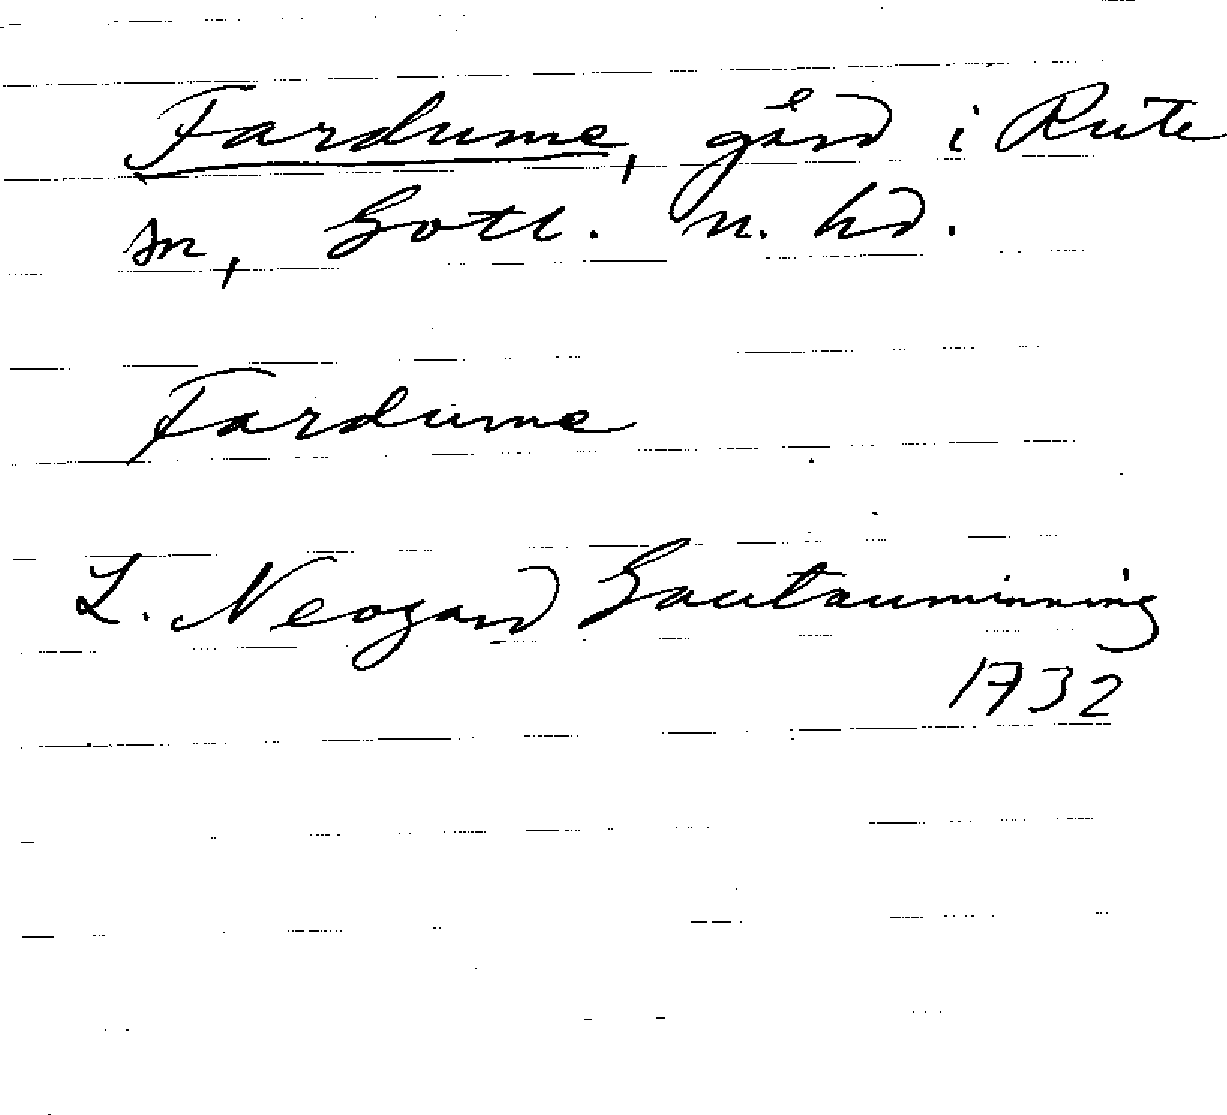 Fardume, gård i Rute
sn, Gotl. n. hd.
Fardume
L. Neogard Gautauminning
1732